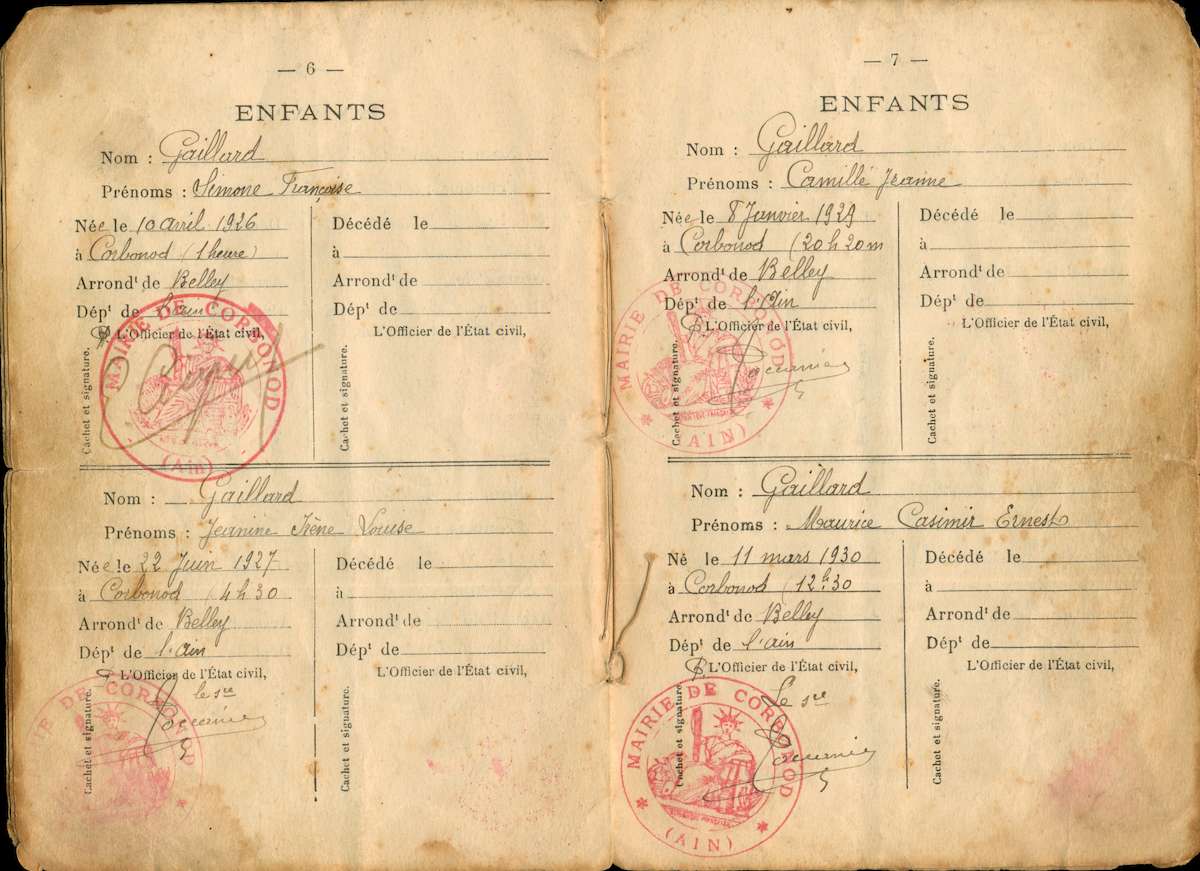 — 6 —
ENFANTS
Nom : Gaillard
Prénoms : Simone Françoise
Née le 10 avril 1926
à Corbonod (1 heure)
Arrondt de Belley
Dépt de l'ain
L'Officier de l'État civil,
Cachet et signature.
MAIRIE DE CORBONOD
(Ain)
Décédé le
à
Arrondt de
Dépt de
L'Officier de l'État civil,
Cachet et signature.
Nom : Gaillard
Prénoms : Jeanine Irène Louise
Née le 22 Juin 1927
à Corbonod (4h30
Arrondt de Belley
Dépt de l'ain
L'Officier de l'État civil,
le sre
Cachet et signature.
MAIRIE DE CORBONOD
Décédé le
à
Arrondt de
Dépt de
L'Officier de l'État civil,
Cachet et signature.
— 7 —
ENFANTS
Nom : Gaillard
Prénoms : Camille Jeanne
Née le 8 Janvier 1929
à Corbonod (20h20m
Arrondt de Belley
Dépt de l'Ain
L'Officier de l'État civil,
Cachet et signature.
MAIRIE DE CORBONOD
(AIN)
Décédé le
à
Arrondt de
Dépt de
L'Officier de l'État civil,
Cachet et signature.
Nom : Gaillard
Prénoms : Maurice Casimir Ernest
Né le 11 mars 1930
à Corbonod (12h30
Arrondt de Belley
Dépt de l'ain
L'Officier de l'État civil,
Le sre
Cachet et signature.
MAIRIE DE CORBONOD
(AIN)
Décédé le
à
Arrondt de
Dépt de
L'Officier de l'État civil,
Cachet et signature.